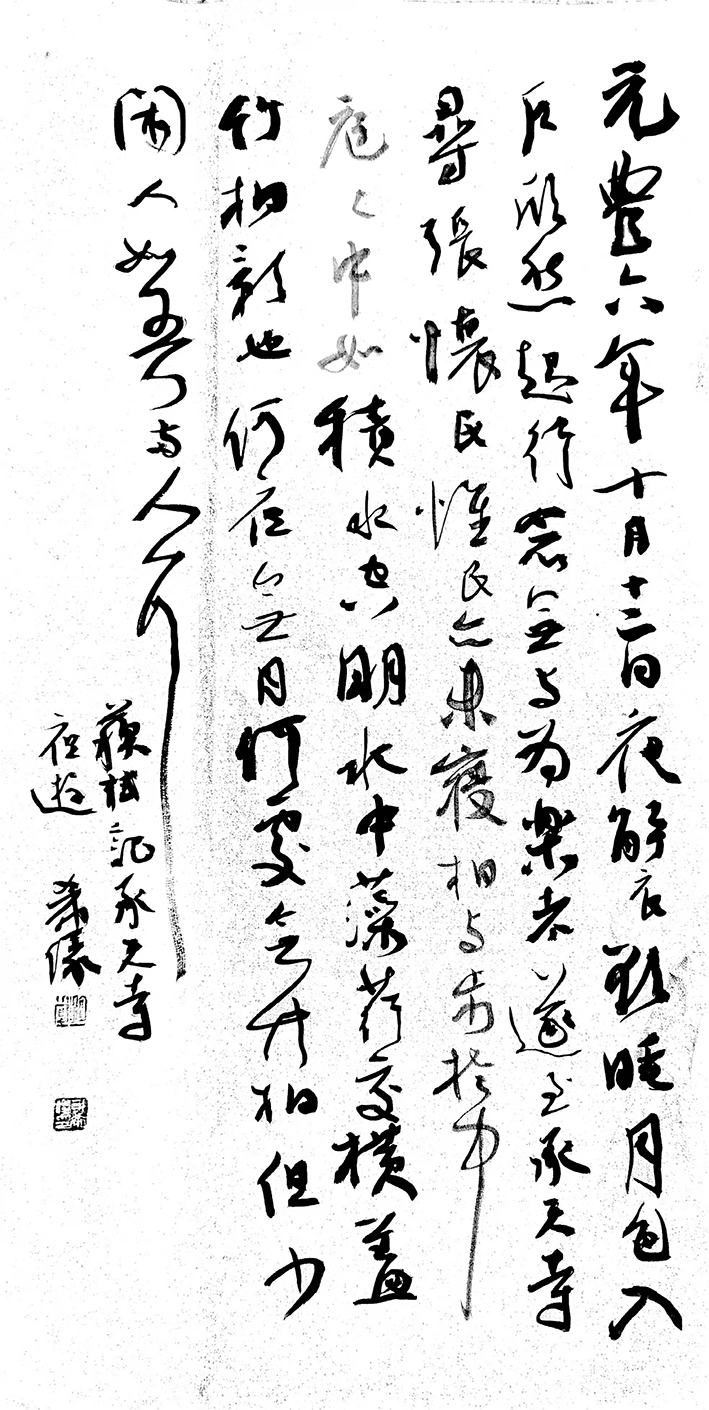 元豐六年十月十二日夜解衣欲睡月色入
户欣然起行念無与为樂者遂至承天寺
尋張懷民惟民亦未寢相与步於中
庭々中如積水空明水中藻荇交横蓋
竹柏影也何夜無月何處無竹柏但少
閑人如吾两人耳
蘇軾記承天寺
夜遊